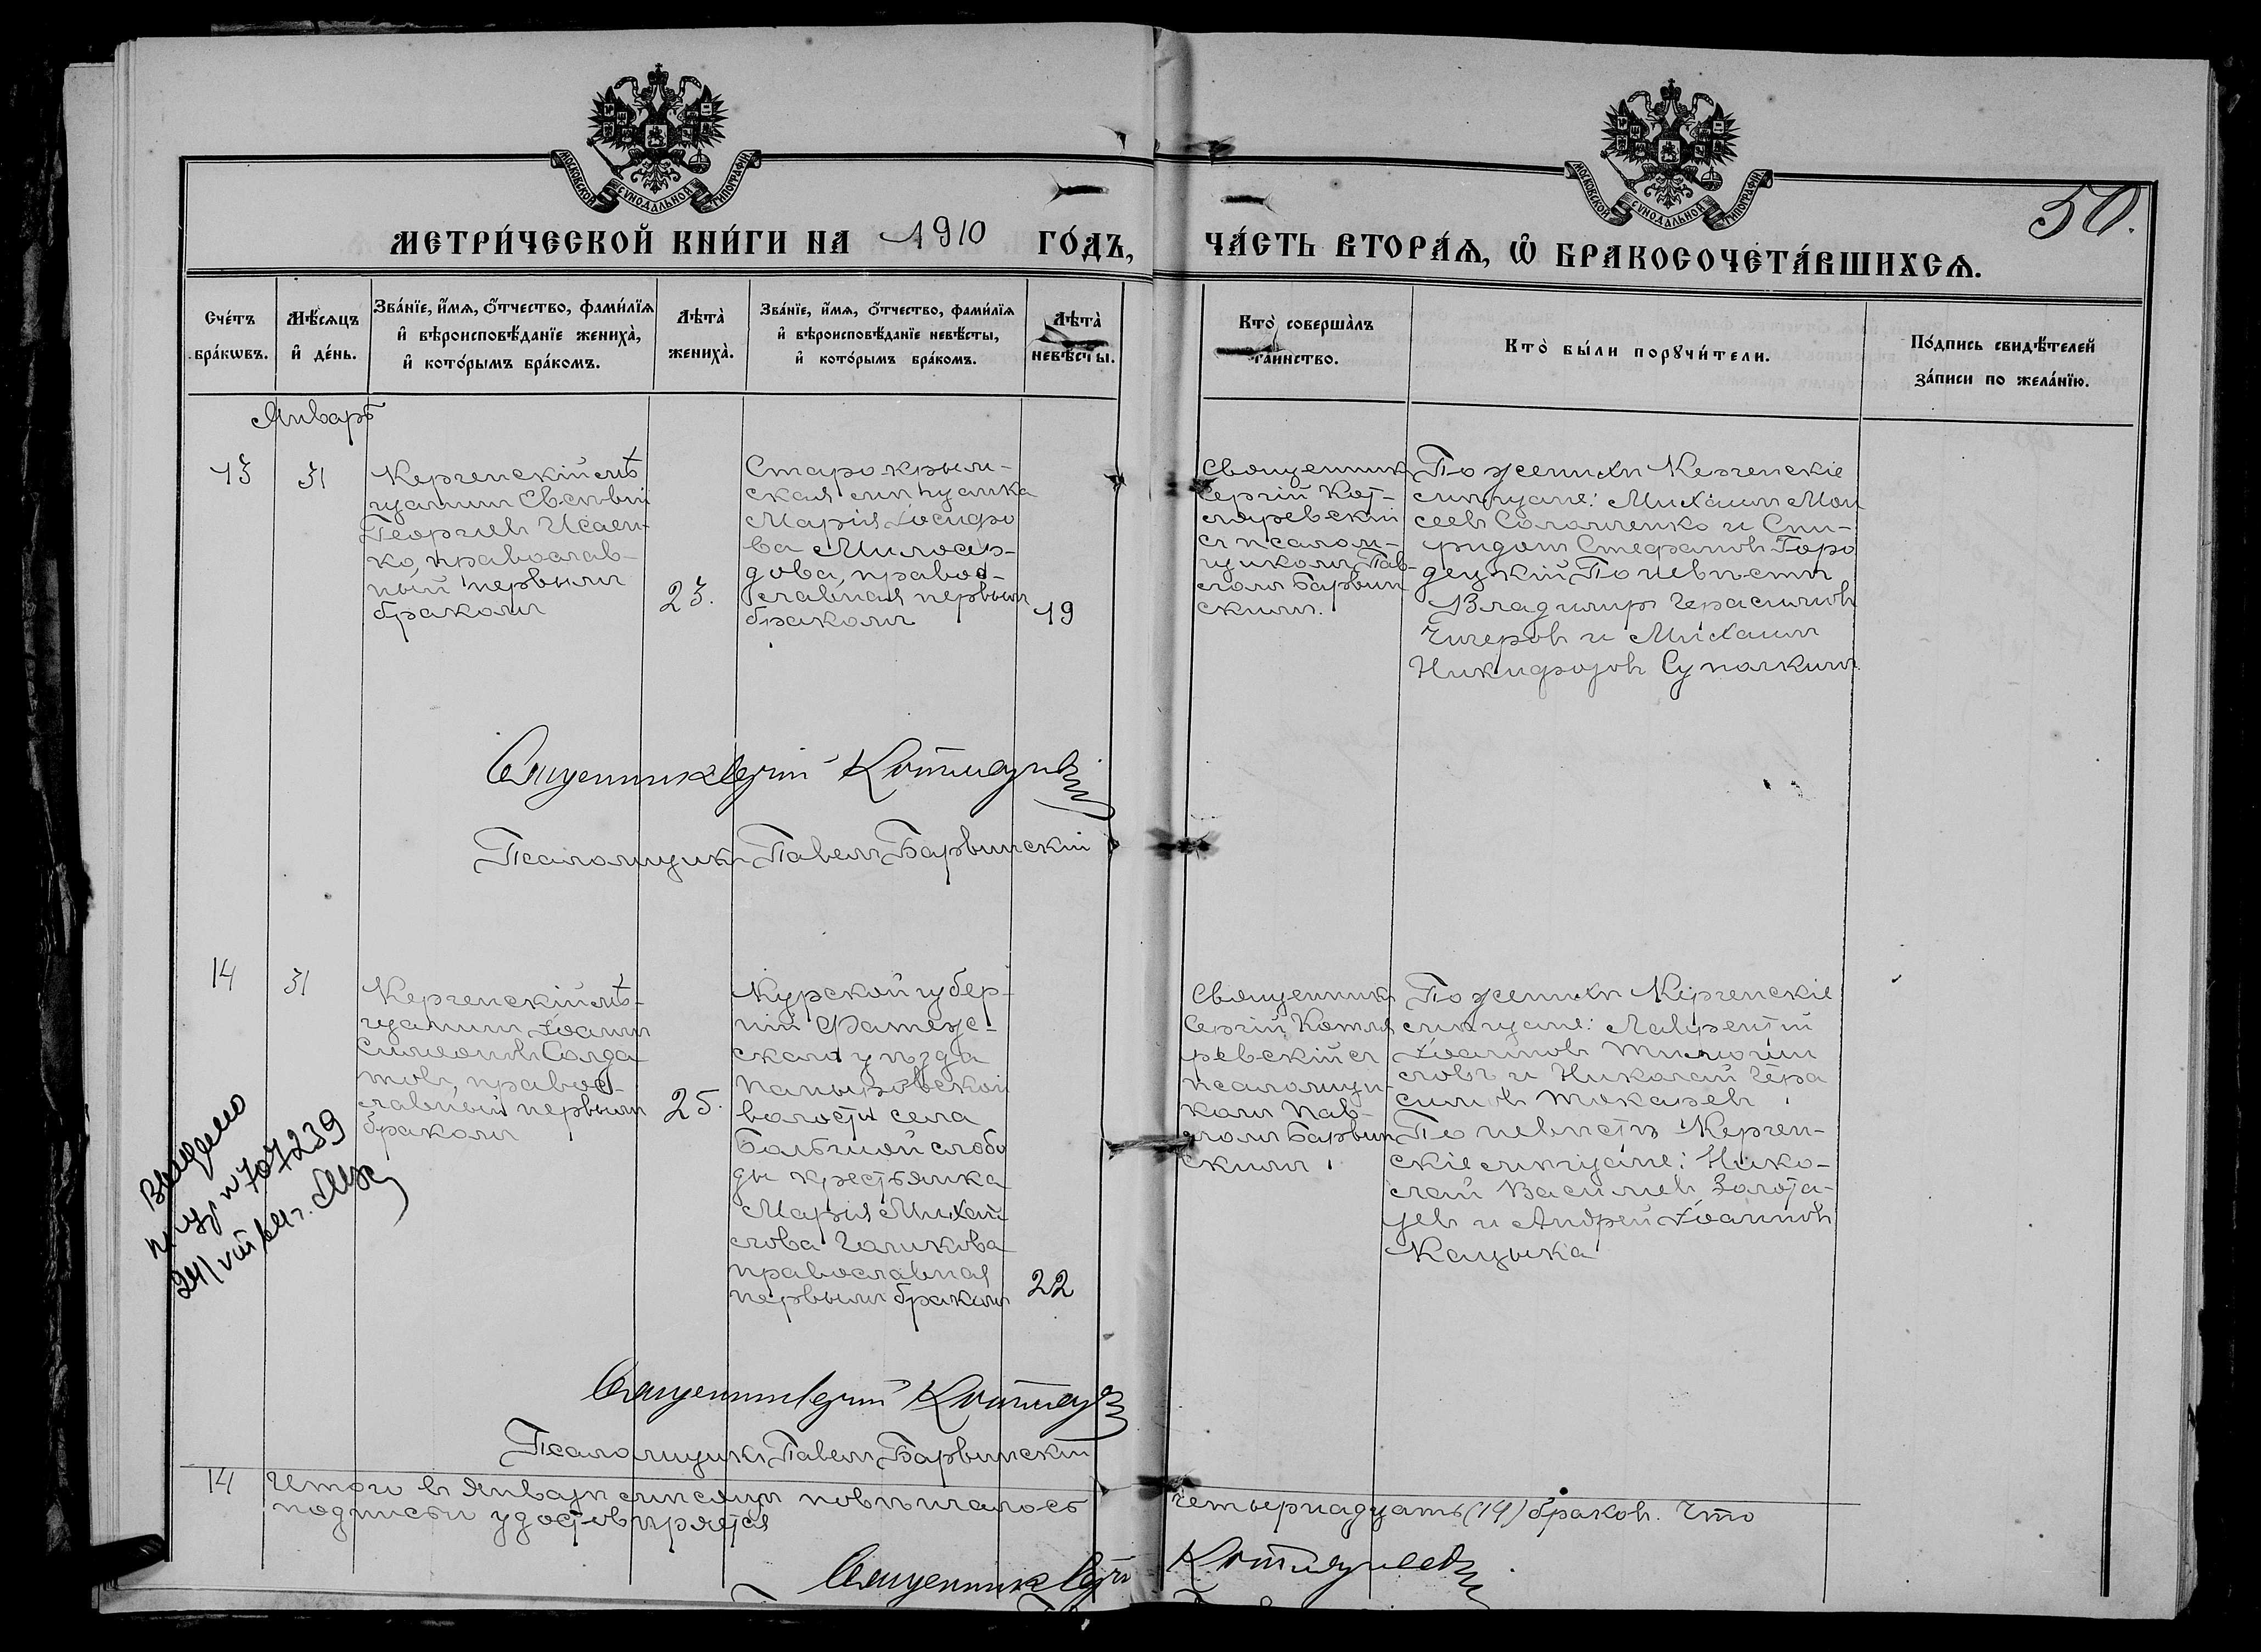 МОСКОВСКОЙ СѴНОДАЛЬНОЙ ТИПОГРАФІИ
МОСКОВСКОЙ СѴНОДАЛЬНОЙ ТИПОГРАФІИ
50.
МЕТРИ́ЧЕСКОЙ КНИ́ГИ НА 1910 ГО́ДЪ, ЧА́СТЬ ВТОРА́Ѧ, Ѡ БРАКОСОЧЕТА́ВШИХСѦ.
Сче́тъ
бра́кѡвъ.
Мѣ́сѧцъ
и҆ де́нь.
Зва́нїе, и҆́мѧ, ѻ҆́тчество, фами́лїѧ
и҆ вѣроисповѣ́данїе жениха̀,
и҆ кото́рымъ бра́комъ.
Лѣта̀
жениха̀.
Зва́нїе, и҆́мѧ, ѻ҆́тчество, фами́лїѧ
и҆ вѣроисповѣ́данїе невѣ́сты,
и҆ кото́рымъ бра́комъ.
Лѣта̀
невѣ́сты.
Кто̀ соверша̀лъ
таинство.
Кто̀ бы́ли порꙋчи́тели.
По́дпись свидѣ́телей
за́писи по жела́нїю.
Январь
13
31
Керченскій мѣ
щанинъ Евсевій
Георгіевъ Исаен-
ко, православ-
ный первымъ
бракомъ
23.
Старокрым-
ская мѣщанка
Марія Іосифо
ва Милосер-
дова, правос-
славная первымъ
бракомъ
19
Священникъ
Сергій Кот-
ляревскій
съ псалом-
щикомъ Пав-
ломъ Барвин
скимъ.
По женихѣ Керченскіе
мѣщане: Михаилъ Мои
сеевъ Соломченко и Спи-
ридонъ Стефановъ Горо
децкій По невѣстѣ
Владимиръ Герасимовъ
Чигеровъ и Михаилъ
Никифоровъ Суполкинъ.
Священникъ Сергій Котляревскій
Псаломщикъ Павелъ Барвинскій
14
31
Керченскій мѣ-
щанинъ Іоаннъ
Симеоновъ Солда
товъ, правос-
славный первымъ
бракомъ
25.
Курской губер-
ніи Фатеж-
скаго уѣзда
волости села
Большой слобо
ды крестьянка
Марія Михай
лова Голикова
православная
первымъ бракомъ
22
Священникъ
Сергій Котля
ревскій съ
псаломщи-
комъ Пав-
ломъ Барвин
скимъ
По женихѣ Керченскіе
мѣщане: Лаврентій
Іоанновъ
и Николай Гера
симовъ Токаревъ
По невѣстѣ Керчен-
скіе мѣщане: Нико-
лай Васильевъ Золота-
ревъ и Андрей Іоанновъ
Кацыка
Выдано
n 707239
Священникъ Сергій Котляревскій
Псаломщикъ Павелъ Барвинскій
14 Итого въ Январѣ мѣсяцѣ повѣнчалось четырнадцать (14) браковъ. Что
подписью удостовѣряется
Священникъ Сергій Котляревскій